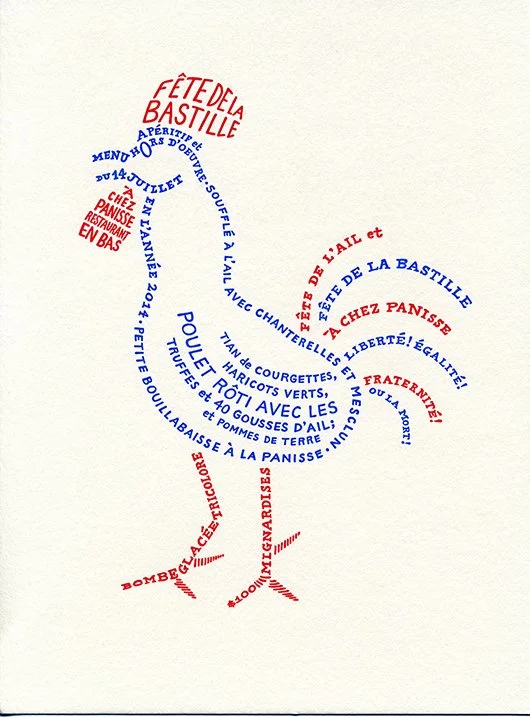 FÊTE DE LA
BASTILLE
APÉRITIF et
HORS D'OEUVRE · SOUFFLÉ À L'AIL AVEC CHANTERELLES ET MESCLUN ·
MENU
DU 14 JUILLET
À
CHEZ
PANISSE
RESTAURANT
EN BAS
EN L'ANNÉE 2014 · PETITE BOUILLABAISSE À LA PANISSE ·
POULET RÔTI AVEC LES
TRUFFES et 40 GOUSSES D'AIL;
TIAN de COURGETTES,
HARICOTS VERTS,
et POMMES DE TERRE
FÊTE DE L'AIL et
FÊTE DE LA BASTILLE
À CHEZ PANISSE
LIBERTÉ! ÉGALITÉ!
FRATERNITÉ!
OU LA MORT!
BOMBE GLACÉE TRICOLORE
MIGNARDISES
$100